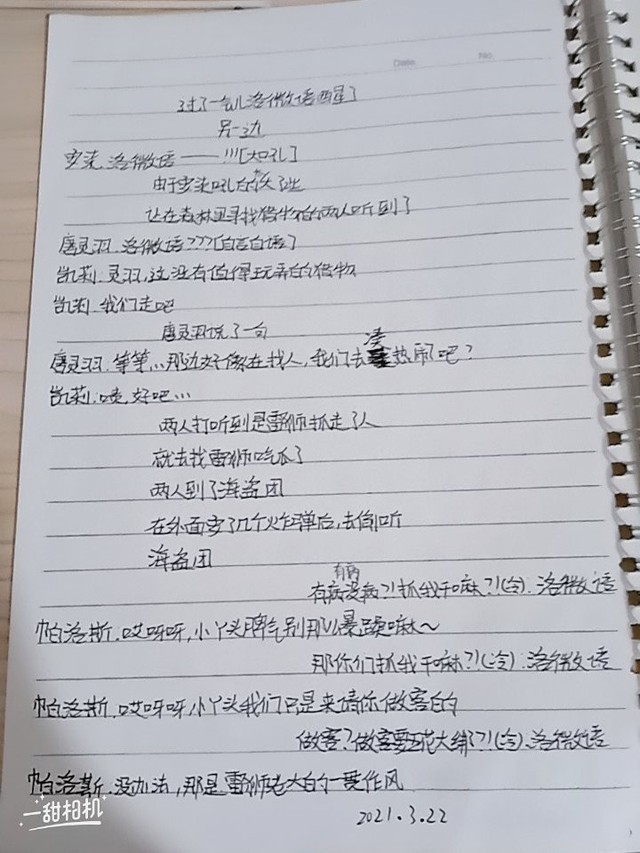 Date. No.
过了一会儿洛微语醒了
另一边
安柒.洛微语——!!![大吼]
由于安柒吼的太大
让在森林里寻找猎物的两人听到了
唐灵羽.洛微语???[自言自语]
凯莉.灵羽,这没有值得玩弄的猎物
凯莉.我们走吧
唐灵羽说了一句
唐灵羽:等等,,,那边好像在找人,我们去凑热闹吧?
凯莉:啧,好吧,,,
两人打听到是雷狮抓走了人
就去找雷狮吃瓜了
两人到了海盗团
在外面安了几个炸弹后,去偷听
海盗团
有病没病?!抓我干嘛?!(冷).洛微语
帕洛斯.哎呀呀,小丫头脾气别那么暴躁嘛~
那你们抓我干嘛?!(冷).洛微语
帕洛斯.哎呀呀,小丫头我们只是来请你做客的
做客?做客要五花大绑?!(冷).洛微语
帕洛斯.没办法,那是雷狮老大的一贯作风
2021.3.22
一甜相机